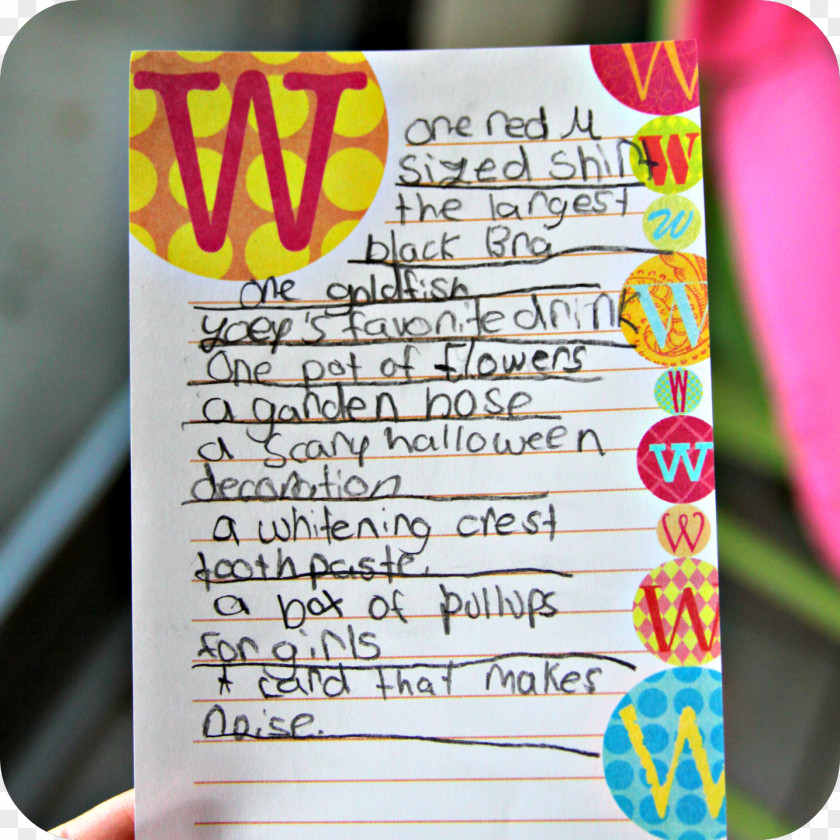 W
one red M
sized shirt
the largest
black Bra
one goldfish
yoey's favorite drink
One pot of flowers
a garden hose
a scary halloween
decoration
a whitening crest
toothpaste.
a box of pullups
for girls
A card that makes
noise.
W
W
W
W
W
W
W
W
W